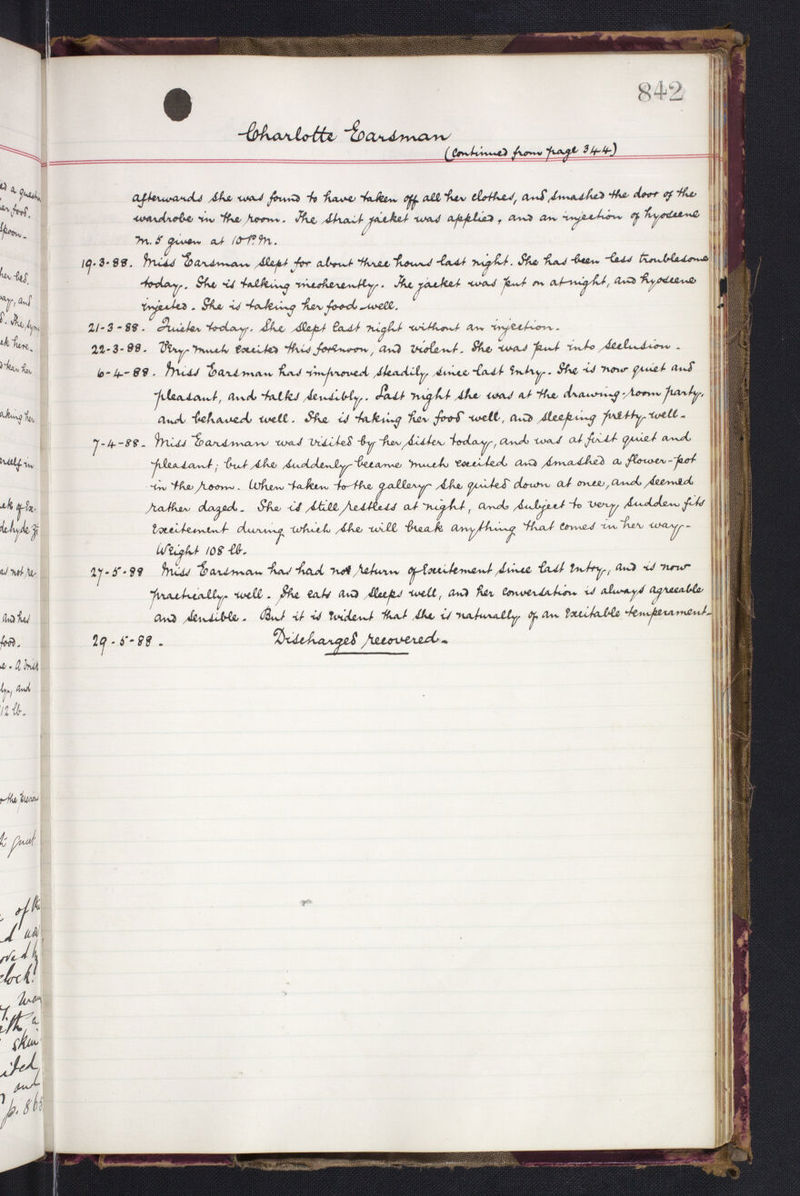 842
Charlotte Earsman
(Continued from page 344)
afterwards she was found to have taken off all her clothes, and smashed the door of the
wardrobe in the room. The strait jacket was applied, and an injection of hyoscene
m. 5 given at 10 P.M.
19-3-88. Miss Earsman slept for about three hours last night. She has been less troublesome
today. She is talking incoherently. The jacket was put on at night, and hyoscene
injected. She is taking her food well.
21-3-88. Quieter today. She slept last night without an injection.
22-3-88. Very much excited this forenoon, and violent. She was put into seclusion.
6-4-88. Miss Earsman has improved steadily since last entry. She is now quiet and
pleasant, and talks sensibly. Last night she was at the drawing-room party,
and behaved well. She is taking her food well, and sleeping pretty well.
7-4-88. Miss Earsman was visited by her sister today, and was at first quiet and
pleasant; but she suddenly became much excited and smashed a flower-pot
in the room. When taken to the gallery she quited down at once, and seemed
rather dazed. She is still restless at night, and subject to very sudden fits
excitement during which she will break anything that comes in her way.
Weight 108 lb.
27-5-88 Miss Earsman has had not return of excitement since last entry, and is now
practically well. She eats and sleeps well, and her conversation is always agreeable
and sensible. But it is evident that she is naturally of an excitable temperament.
29-5-88. Discharged recovered.